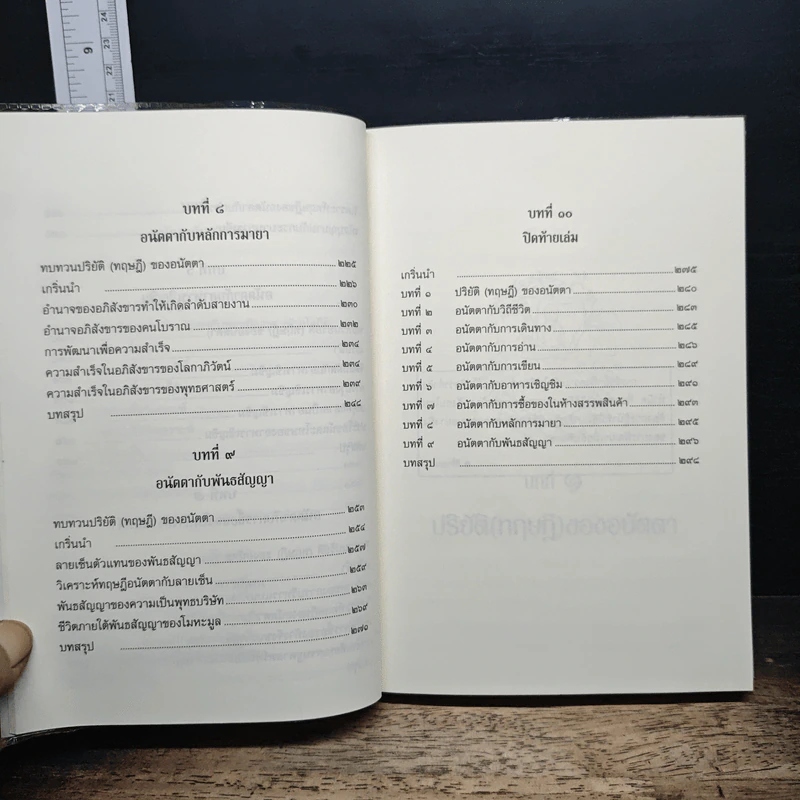 บทที่ ๘
อนัตตากับหลักการมายา
ทบทวนปริยัติ (ทฤษฎี) ของอนัตตา ๒๒๕
เกริ่นนำ ๒๒๖
อำนาจของอภิสังขารทำให้เกิดลำดับสายงาน ๒๓๐
อำนาจอภิสังขารของคนโบราณ ๒๓๒
การพัฒนาเพื่อความสำเร็จ ๒๓๔
ความสำเร็จในอภิสังขารของโลกาภิวัตน์ ๒๓๔
ความสำเร็จในอภิสังขารของพุทธศาสตร์ ๒๓๙
บทสรุป ๒๔๘
บทที่ ๙
อนัตตากับพันธสัญญา
ทบทวนปริยัติ (ทฤษฎี) ของอนัตตา ๒๕๓
เกริ่นนำ ๒๕๔
ลายเซ็นตัวแทนของพันธสัญญา ๒๕๗
วิเคราะห์ทฤษฎีอนัตตากับลายเซ็น ๒๕๙
พันธสัญญาของความเป็นพุทธบริษัท ๒๖๓
ชีวิตภายใต้พันธสัญญาของโมหะมูล ๒๖๙
บทสรุป ๒๗๐
บทที่ ๑๐
ปิดท้ายเล่ม
เกริ่นนำ ๒๗๕
บทที่ ๑ ปริยัติ (ทฤษฎี) ของอนัตตา ๒๘๐
บทที่ ๒ อนัตตากับวิถีชีวิต ๒๘๓
บทที่ ๓ อนัตตากับการเดินทาง ๒๘๕
บทที่ ๔ อนัตตากับการอ่าน ๒๘๖
บทที่ ๕ อนัตตากับการเขียน ๒๘๙
บทที่ ๖ อนัตตากับอาหารเชิญชิม ๒๙๐
บทที่ ๗ อนัตตากับการซื้อของในห้างสรรพสินค้า ๒๙๓
บทที่ ๘ อนัตตากับหลักการมายา ๒๙๕
บทที่ ๙ อนัตตากับพันธสัญญา ๒๙๖
บทสรุป ๒๙๘
24
23
22
21
9